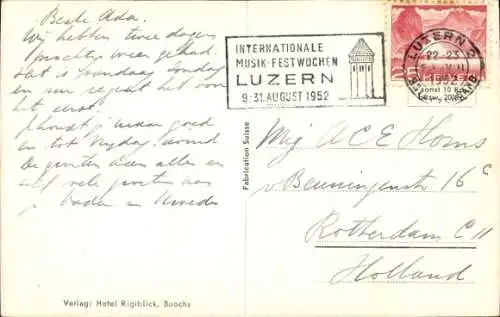 Beste Ada.
Wij hebben twee dagen
prachtig weer gehad.
Het is vandaag Zondag
en nu regent het voor
het eerst.
je maar goed
en tot Vrijdag avond
De groeten aan allen en
zelf vele groeten van
je Vader en Moeder
INTERNATIONALE
MUSIK-FESTWOCHEN
LUZERN
9.-31. AUGUST 1952
LUZERN 2
22-23
1952
sonst 10 Rp.
Fabrication Suisse
Mej A C E Homs
v Beuningenstr 16 c
Rotterdam C 11
Holland
Verlag: Hotel Rigiblick, Buochs